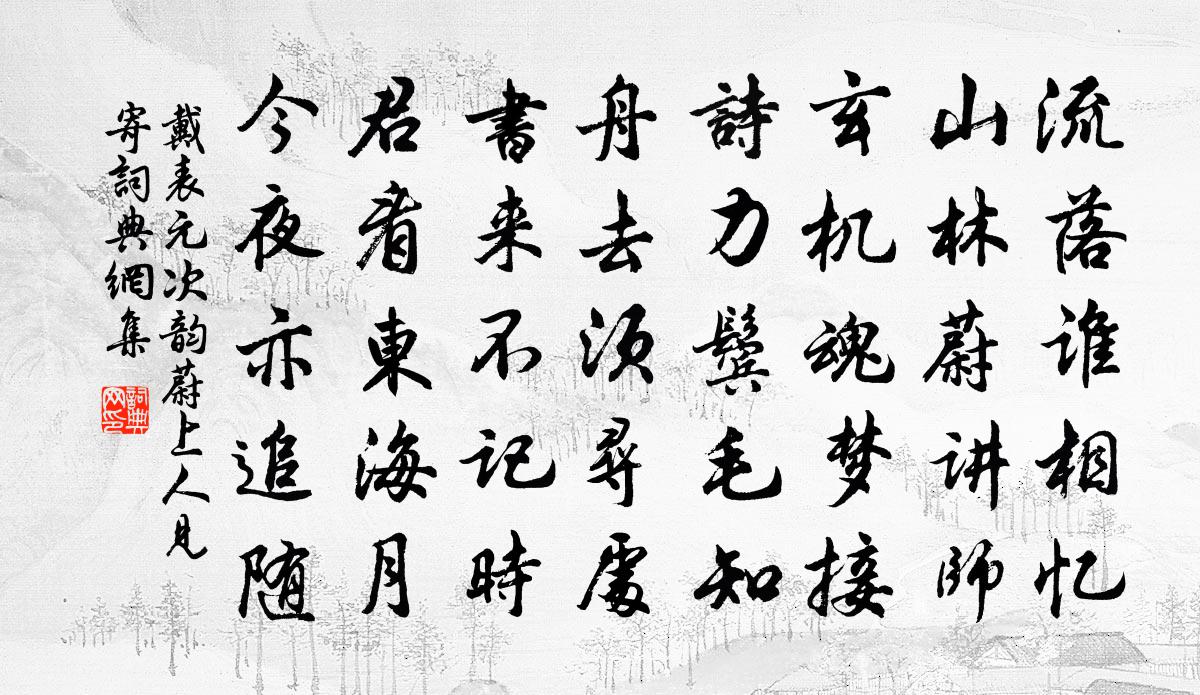 流落谁相忆
山林蔚讲師
玄机魂梦接
詩力鬓毛知
舟去须尋處
書来不记時
君看東海月
今夜亦追随
戴表元次韵蔚上人見
寄詞典網集
詞典
网印